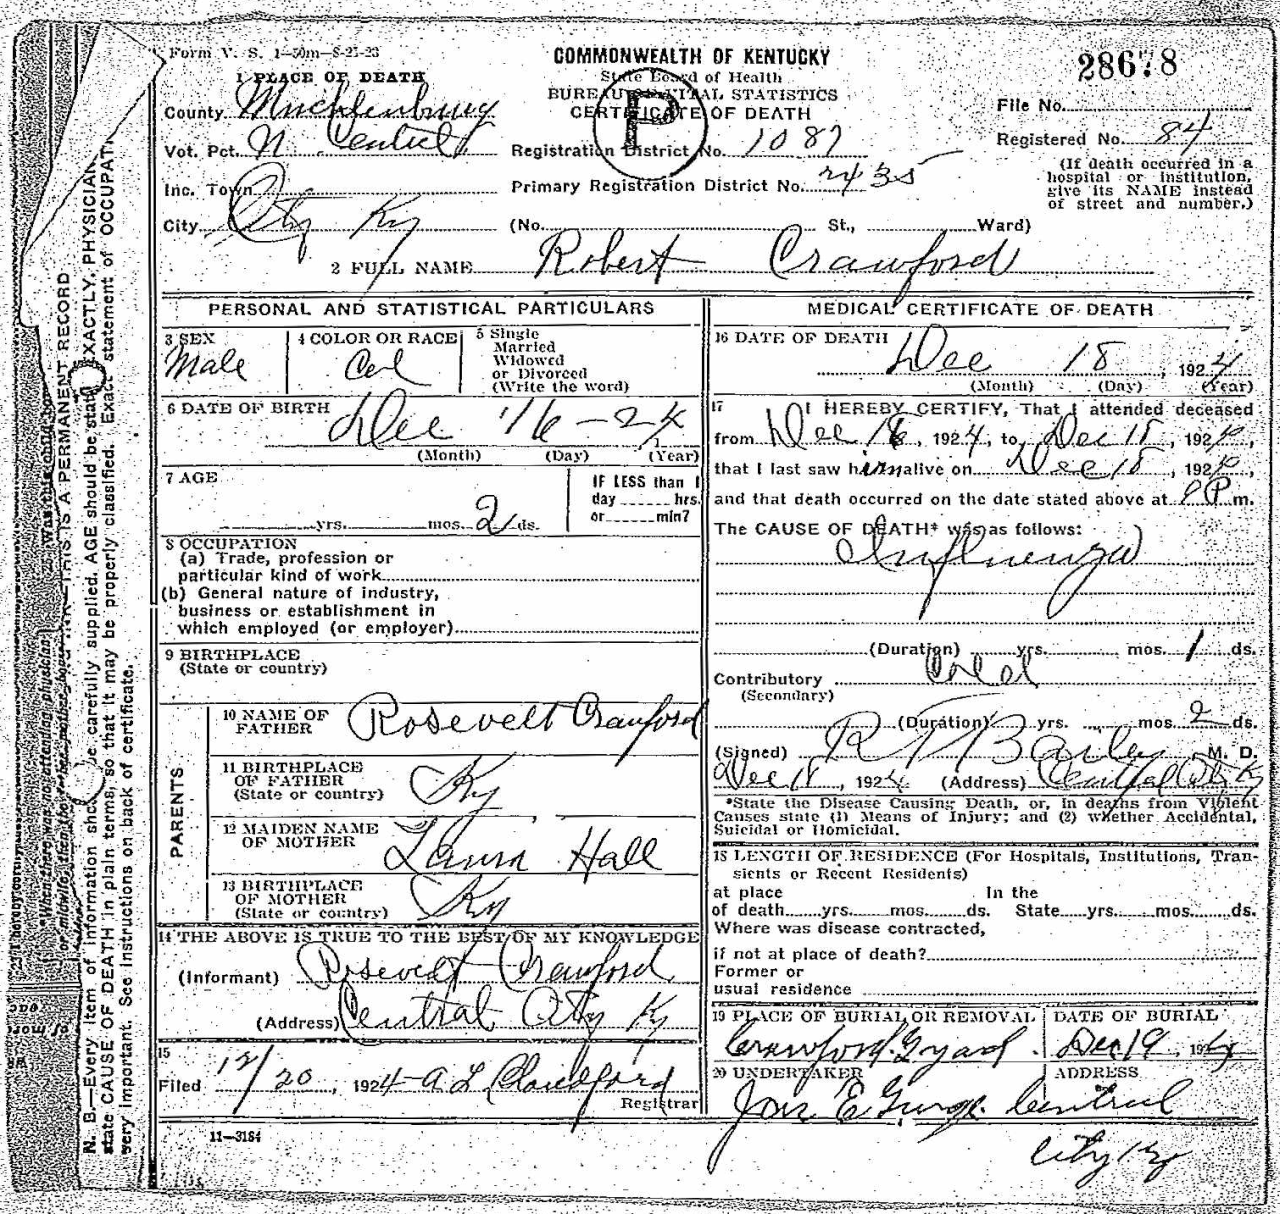 Form V. S. 1-50m-8-21-23
COMMONWEALTH OF KENTUCKY
State Board of Health
BUREAU OF VITAL STATISTICS
CERTIFICATE OF DEATH
P
28678
File No.
Registered No. 84
(If death occurred in a
hospital or institution,
give its NAME instead
of street and number.)
1 PLACE OF DEATH
County Muchlenburg
Vot. Pct. N Central
Registration District No. 1087
Inc. Town
Primary Registration District No. 2435
City City Ky
(No. St., Ward)
2 FULL NAME Robert Crawford
PERSONAL AND STATISTICAL PARTICULARS
3 SEX
Male
4 COLOR OR RACE
Col
5 Single
Married
Widowed
or Divorced
(Write the word)
6 DATE OF BIRTH
Dec 16 - 24
(Month) (Day) (Year)
7 AGE
yrs. mos. 2 ds.
IF LESS than 1
day hrs.
or min?
8 OCCUPATION
(a) Trade, profession or
particular kind of work
(b) General nature of industry,
business or establishment in
which employed (or employer)
9 BIRTHPLACE
(State or country)
PARENTS
10 NAME OF
FATHER
Rosevelt Crawford
11 BIRTHPLACE
OF FATHER
(State or country)
Ky
12 MAIDEN NAME
OF MOTHER
Laura Hall
13 BIRTHPLACE
OF MOTHER
(State or country)
Ky
14 THE ABOVE IS TRUE TO THE BEST OF MY KNOWLEDGE
(Informant) Rosevelt Crawford
(Address) Central City Ky
15
Filed 12/20, 1924 A L
Registrar
11-3184
MEDICAL CERTIFICATE OF DEATH
16 DATE OF DEATH
Dec 18, 1924
(Month) (Day) (Year)
17 I HEREBY CERTIFY, That I attended deceased
from Dec 18, 1924, to Dec 18, 1924,
that I last saw him alive on Dec 18, 1924,
and that death occurred on the date stated above at P m.
The CAUSE OF DEATH* was as follows:
Influenza
(Duration) yrs. mos. 1 ds.
Contributory Cold
(Secondary)
(Duration) yrs. mos. 2 ds.
(Signed) R T Bailey M. D.
Dec 18, 1924 (Address) Central City Ky
*State the Disease Causing Death, or, in deaths from Violent
Causes state (1) Means of Injury; and (2) whether Accidental,
Suicidal or Homicidal.
18 LENGTH OF RESIDENCE (For Hospitals, Institutions, Tran-
sients or Recent Residents)
at place In the
of death yrs. mos. ds. State yrs. mos. ds.
Where was disease contracted,
if not at place of death?
Former or
usual residence
19 PLACE OF BURIAL OR REMOVAL
Crawford G yard
DATE OF BURIAL
Dec 19, 1924
20 UNDERTAKER
E
ADDRESS
Central
City Ky
N. B.—Every item of information should be carefully supplied. AGE should be stated EXACTLY. PHYSICIANS
state CAUSE OF DEATH in plain terms, so that it may be properly classified. Exact statement of OCCUPATION
very important. See instructions on back of certificate.
THIS IS A PERMANENT RECORD